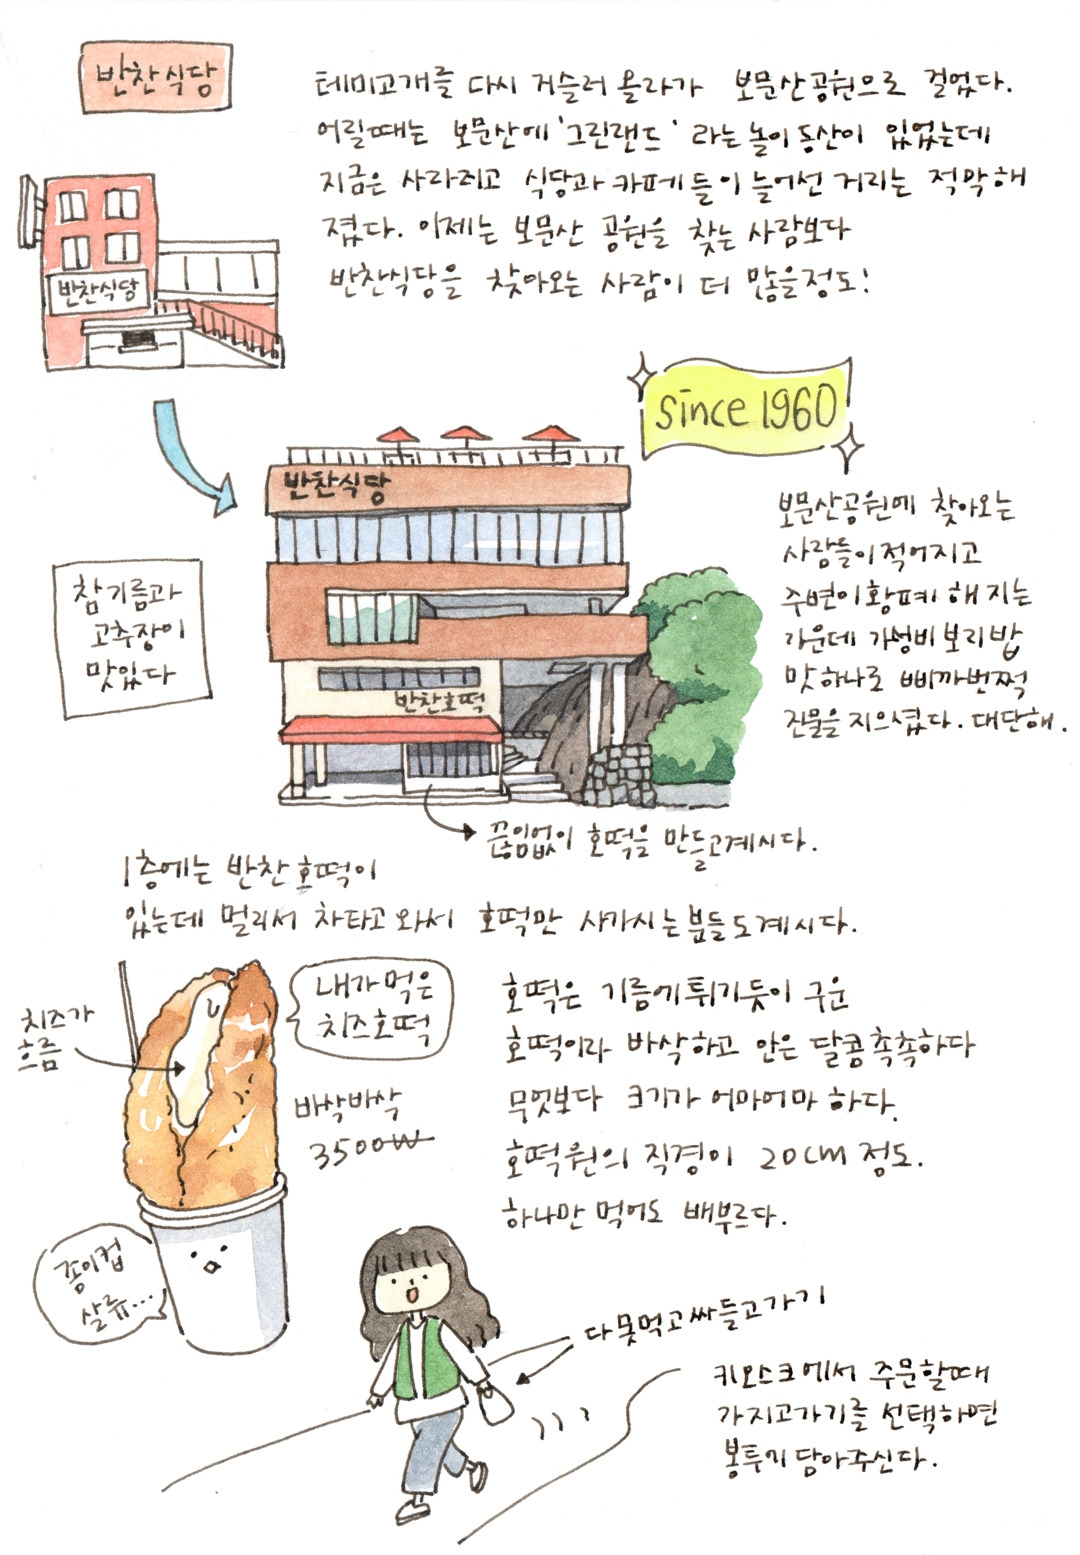 반찬식당
테미고개를 다시 거슬러 올라가 보문산공원으로 걸었다.
어릴때는 보문산에 '그린랜드' 라는 놀이동산이 있었는데
지금은 사라지고 식당과 카페들이 늘어선 거리는 적막해
졌다. 이제는 보문산 공원을 찾는 사람보다
반찬식당을 찾아오는 사람이 더 많을정도!
반찬식당
since 1960
반찬식당
보문산공원에 찾아오는
사람들이 적어지고
주변이 황폐해지는
가운데 가성비 보리밥
맛하나로 삐까번쩍
건물을 지으셨다. 대단해.
참기름과
고추장이
맛있다
반찬호떡
끊임없이 호떡을 만들고계시다.
1층에는 반찬호떡이
있는데 멀리서 차타고 와서 호떡만 사가시는분들도계시다.
치즈가
흐름
내가 먹은
치즈호떡
바삭바삭
3500₩
호떡은 기름에 튀기듯이 구운
호떡이라 바삭하고 안은 달콤촉촉하다
무엇보다 크기가 어마어마 하다.
호떡원의 직경이 20cm 정도.
하나만 먹어도 배부르다.
종이컵
살류...
다못먹고싸들고가기
키오스크에서 주문할때
가지고가기를 선택하면
봉투에 담아주신다.